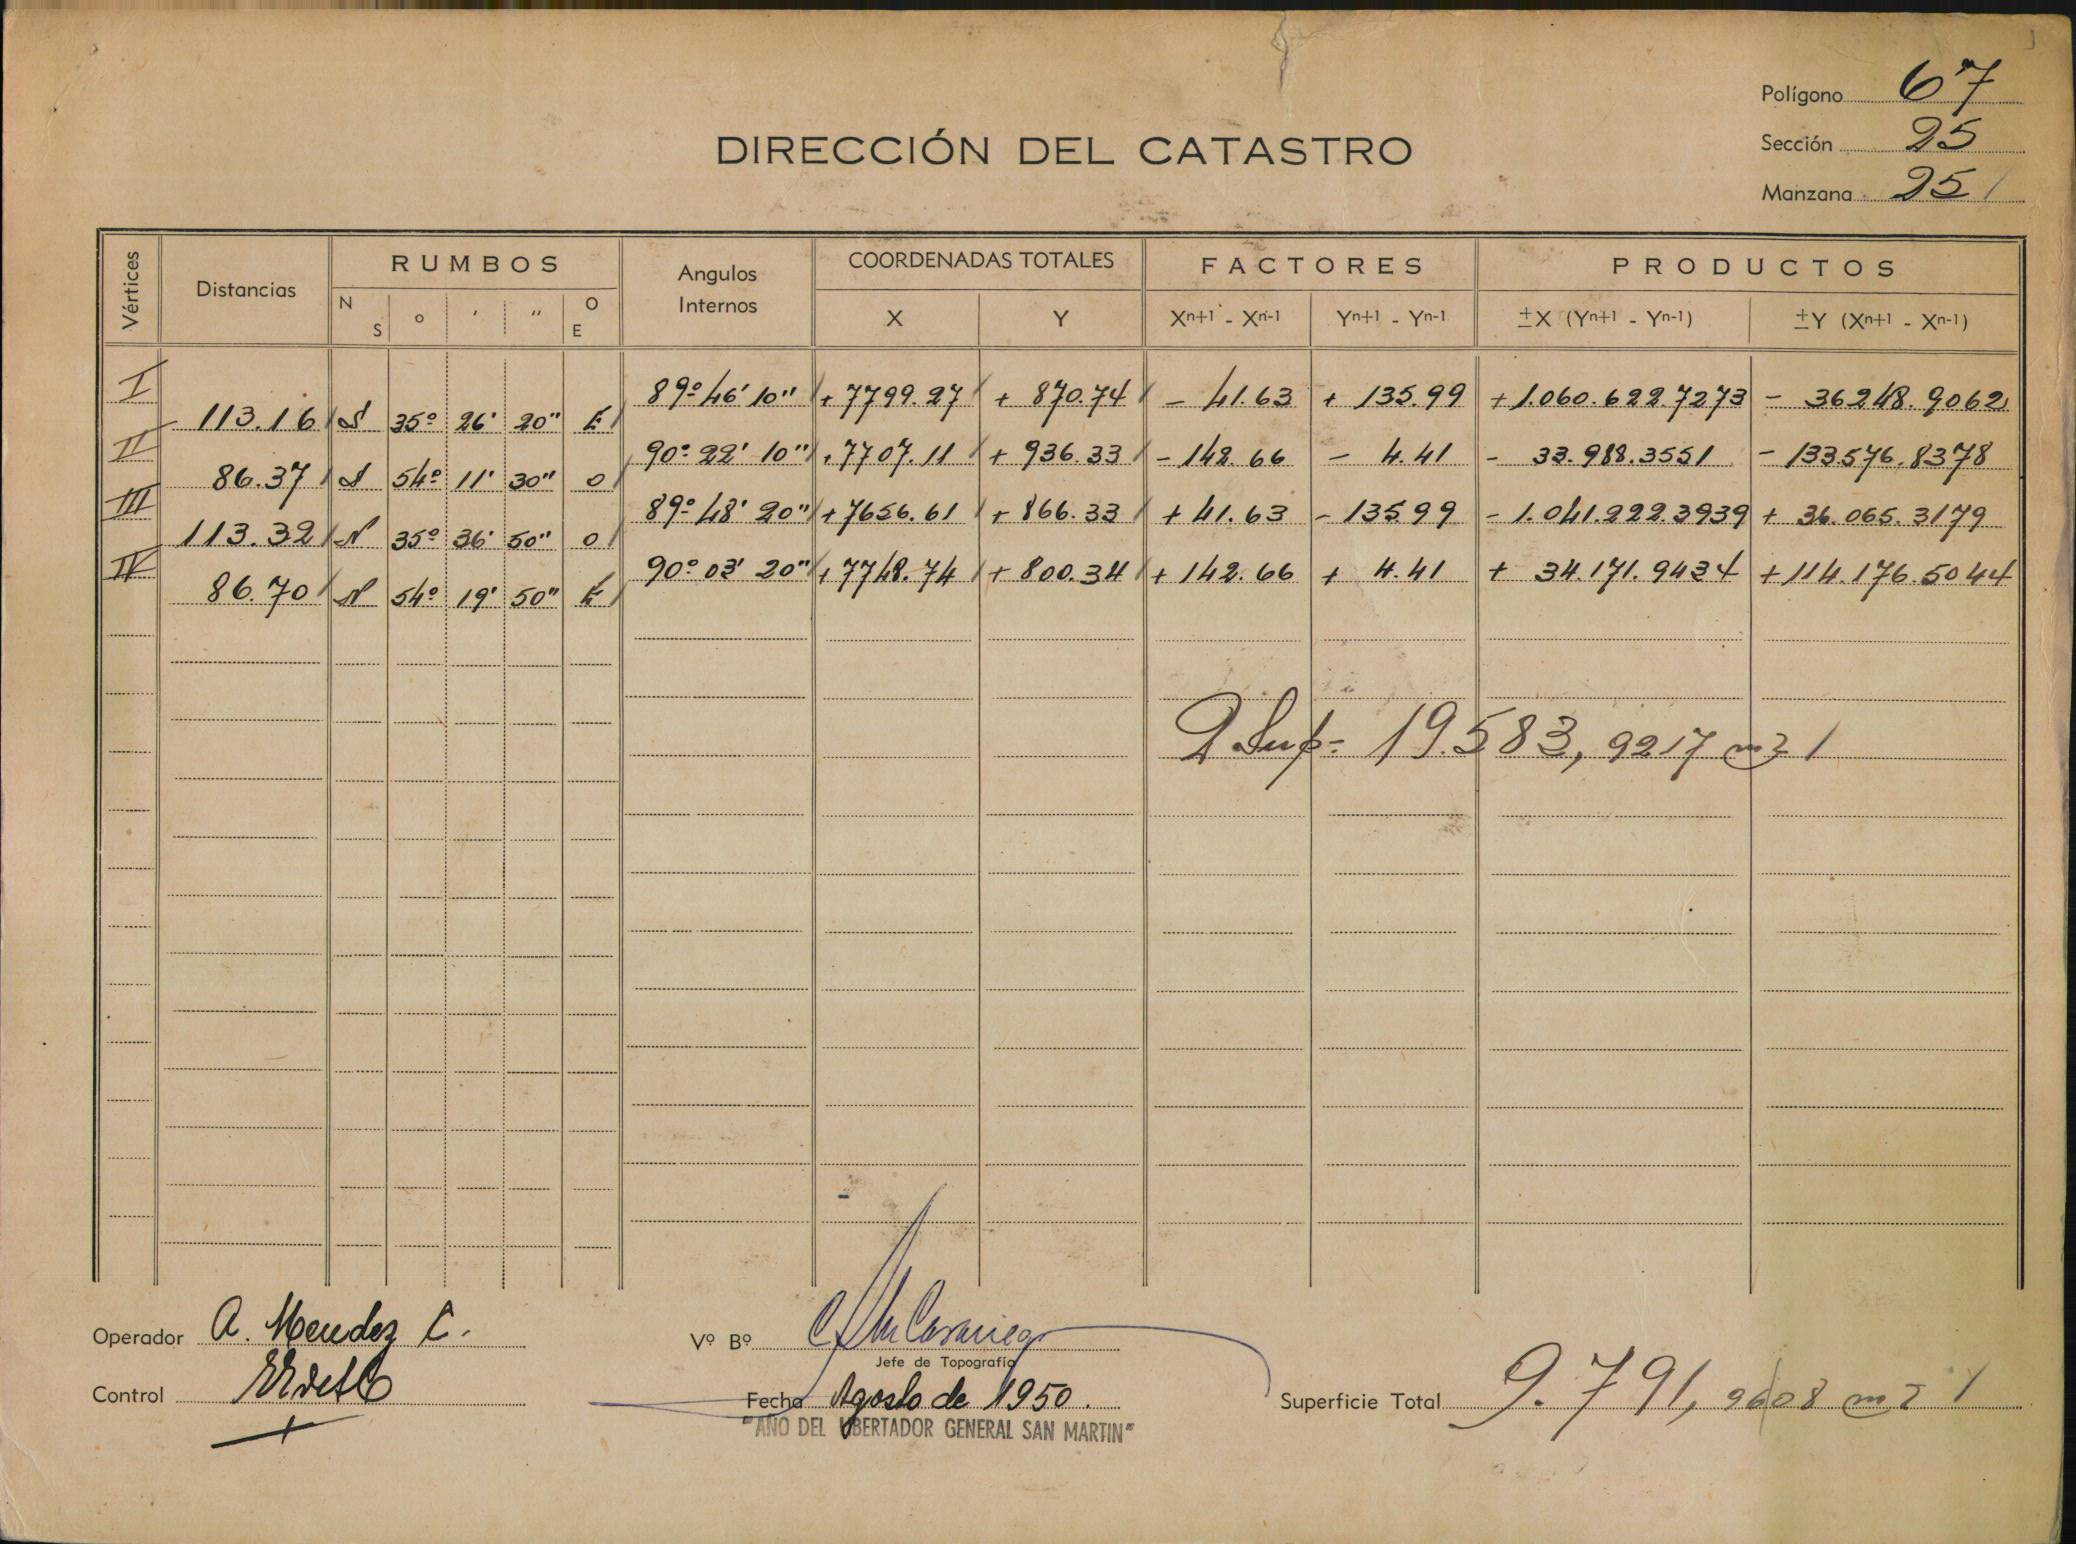 Polígono 67
DIRECCIÓN DEL CATASTRO
Sección 25
Manzana 25
Vértices
Distancias
RUMBOS
N S o ' " O E
Angulos Internos
COORDENADAS TOTALES
X Y
FACTORES
Xn+1 - Xn-1 Yn+1 - Yn-1
PRODUCTOS
±X (Yn+1 - Yn-1) ±Y (Xn+1 - Xn-1)
I 89º 46' 10" +7799.27 + 870.74 - 41.63 + 135.99 +1.060.622.7273 - 36248.9062
113.16 S 35º 26' 20" E
II 90º 22' 10" +7707.11 + 936.33 - 142.66 - 4.41 - 33.988.3551 - 133.576.8378
86.37 S 54º 11' 30" O
III 89º 48' 20" +7656.61 + 866.33 + 41.63 - 135.99 - 1.041.222.3939 + 36.065.3179
113.32 N 35º 36' 50" O
IV 90º 03' 20" +7748.74 + 800.34 + 142.66 + 4.41 + 34.171.9434 +114.176.5044
86.70 N 54º 19' 50" E
2 Sup = 19.583,9217 m2
Operador A. Mendez C.
Vº Bº
Jefe de Topografía
Control
Fecha Agosto de 1950.
Superficie Total 9.791,9608 m2
"AÑO DEL LIBERTADOR GENERAL SAN MARTIN"